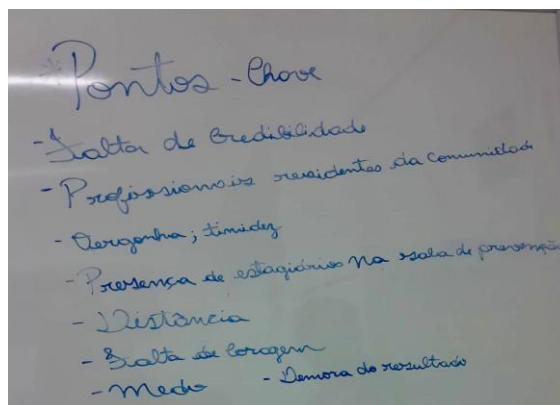 *Pontos - Chave
- Falta de Credibilidade
- Profissionais residentes da comunidade
- Vergonha; timidez
- Presença de estagiários na sala de prevenção
- Distância
- Falta de Coragem
- Medo - Demora do resultado